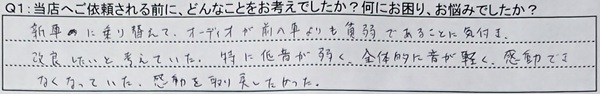 Q1：当店へご依頼される前に、どんなことをお考えでしたか？何にお困り、お悩みでしたか？
新車に乗り替えて、オーディオが前の車よりも貧弱であることに気付き、
改良したいと考えていた。特に低音が弱く、全体的に音が軽く、感動でき
なくなっていた。感動を取り戻したかった。